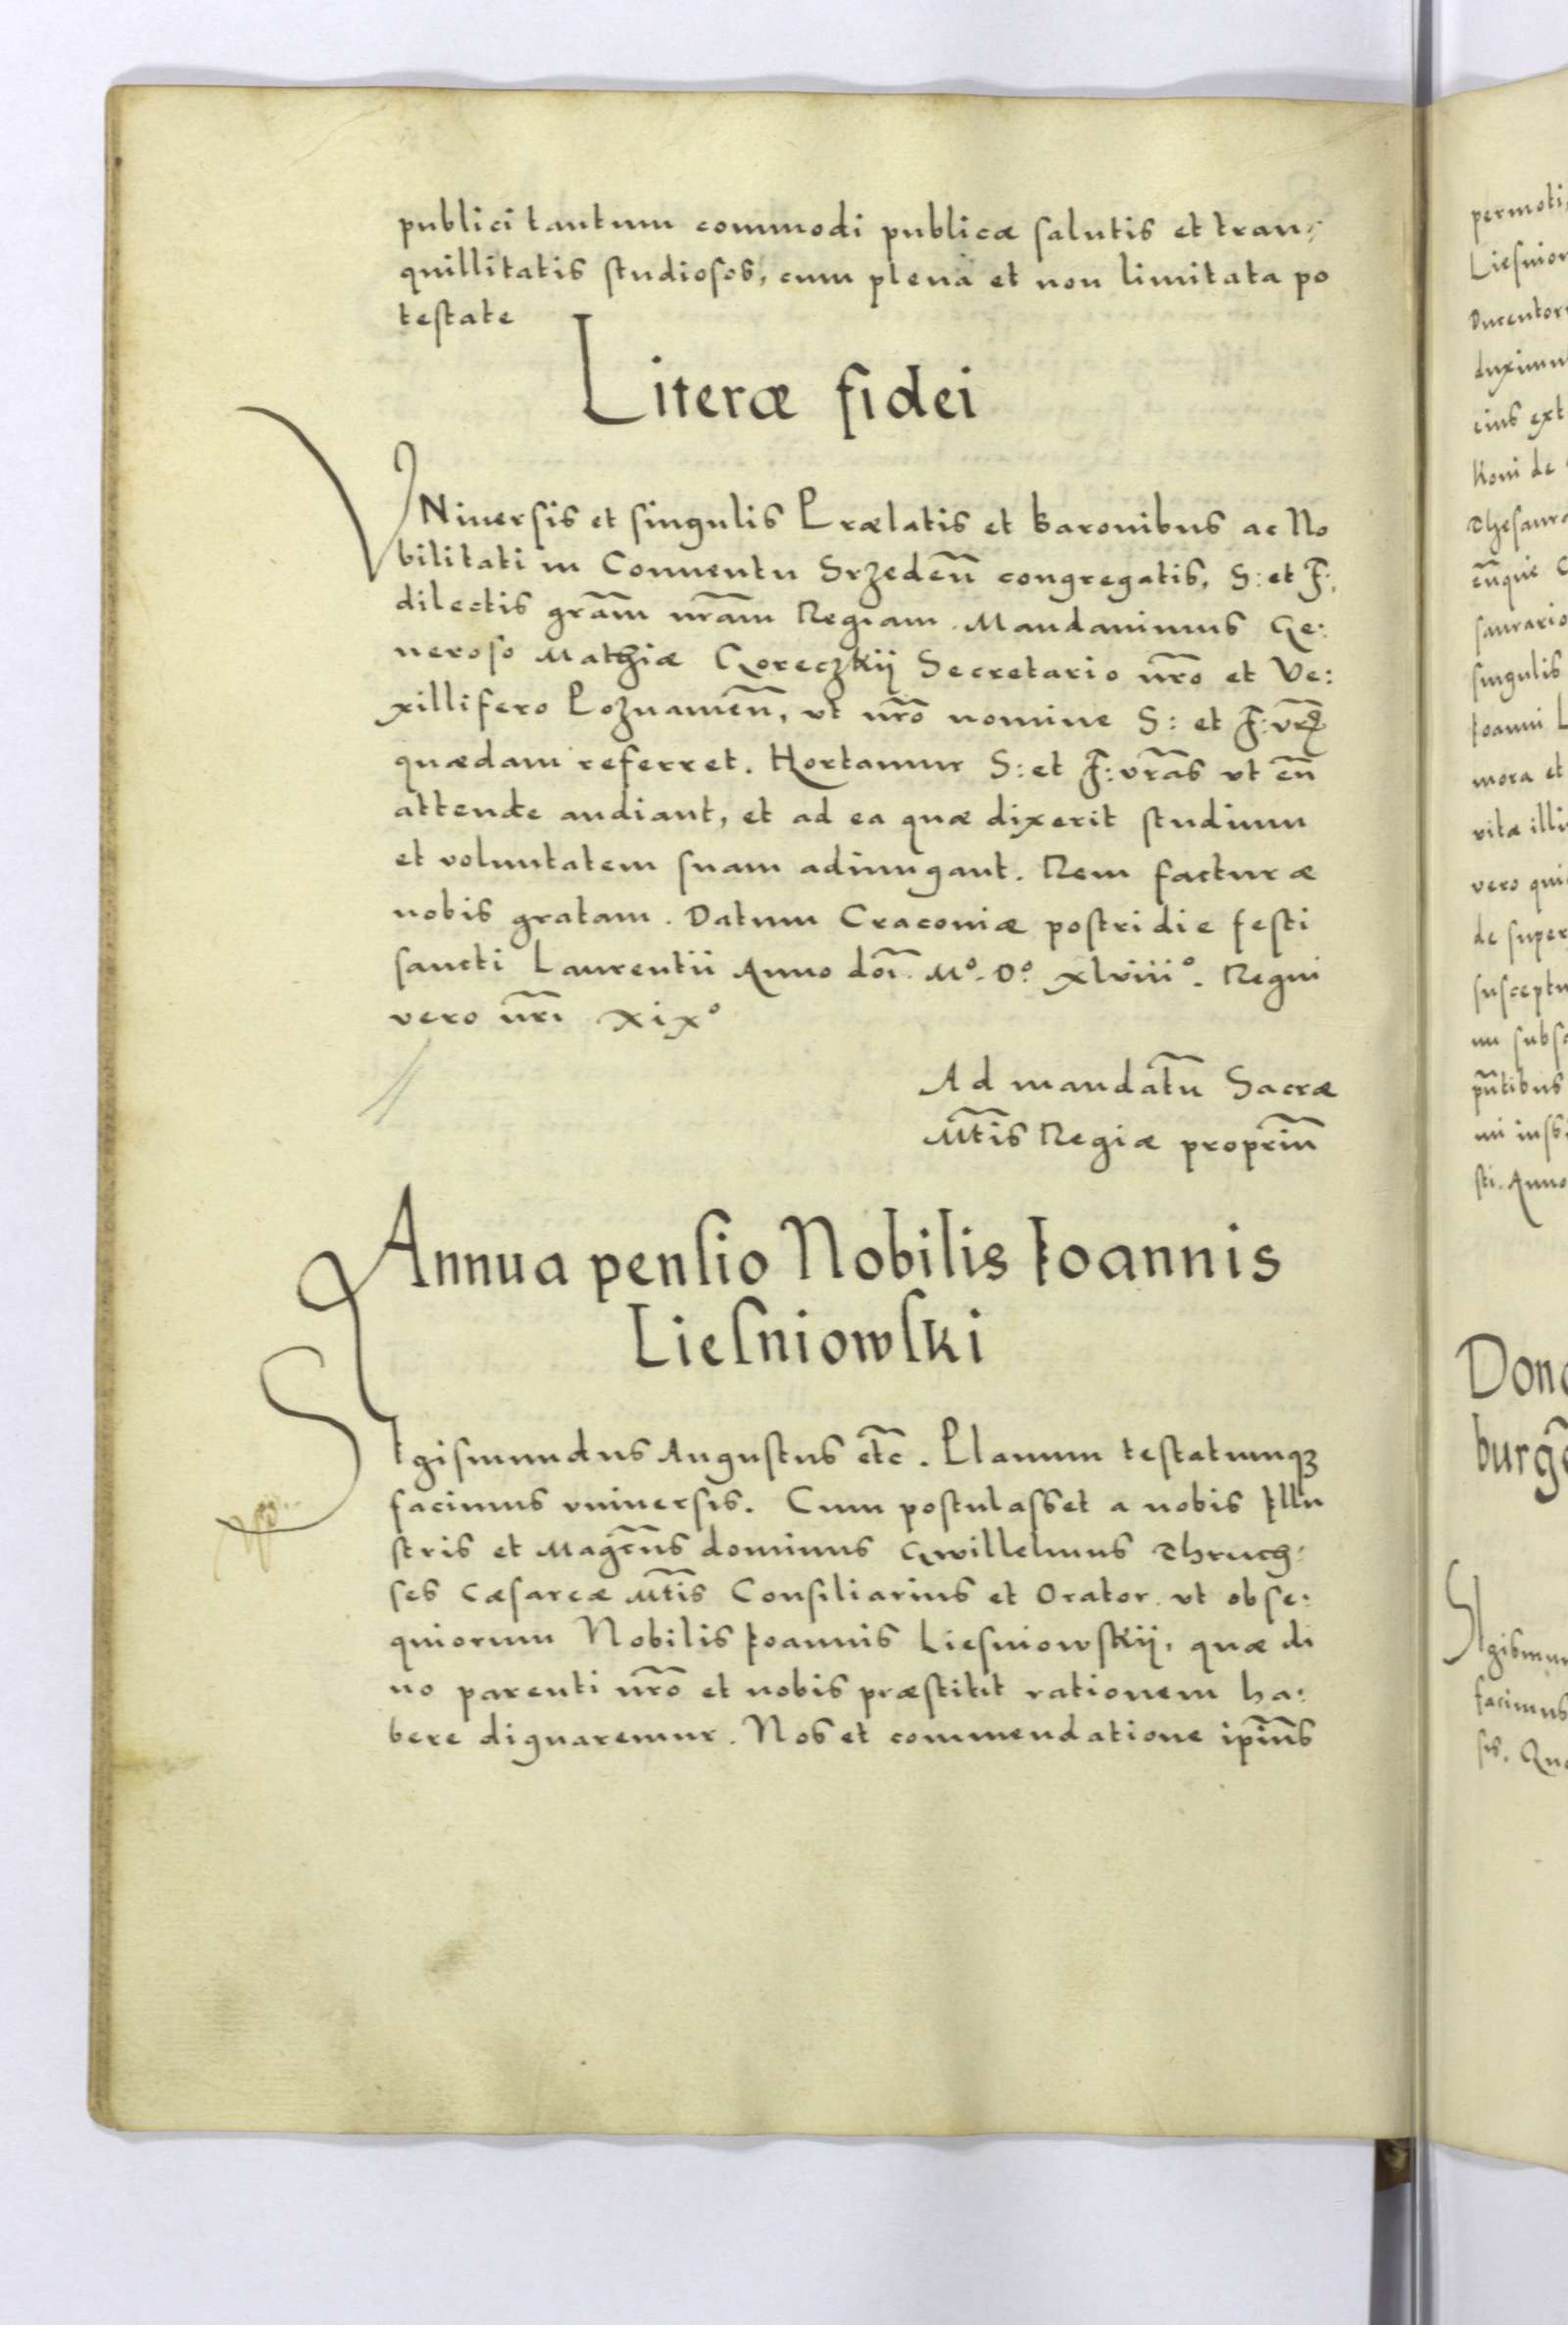 publici tantum commodi publicæ salutis et tran:
quillitatis studiosos, cum plena et non limitata po
testate
Literæ fidei
VNiuersis et singulis Prælatis et Baronibus ac No
bilitati in Conuentu Srzedeñ congregatis, S: et F:
dilectis gra͠m nra͠m Regiam. Mandauimus Ge:
neroso Mathiæ Goreczkij Secretario nr͠o et Ve:
xillifero Poznameñ, ut nr͠o nomine S: et F:
quædam referret. Hortamur S: et F: vra͠s ut eu͠
attente audiant, et ad ea quæ dixerit studium
et voluntatem suam adiungant. Rem facturæ
nobis gratam. Datum Cracouiæ postridie festi
sancti Laurentii Anno do͠i. M°. D°. xlviii°. Regni
vero nr͠i xix°
Ad mandatu͠ Sacræ
Mt͠is Regiæ propriu͠
Annua pensio Nobilis Ioannis
Liesniowski
SIgismundus Augustus et͠c. Planum testatumqꝫ
facimus vniuersis. Cum postulasset a nobis Illu
stris et Magc͠us dominus Gwillelmus Thruch:
ses Cæsareæ Mt͠is Consiliarius et Orator. ut obse:
quiorum Nobilis Ioannis Liesniowskij, quæ di
uo parenti nr͠o et nobis præstitit rationem ha:
bere dignaremur. Nos et commendatione ipi͠us
permoti,
Liesnio
Ducentor
duximu
eius ext
koni de
Thesaur
cu͠que
saurario
singulis
Ioanni L
mora et
vitæ illi
vero qui
de super
susceptu
nu subs
pn͠tibus
sti. Anno
Don
burg
SIgismu
facimus
sis. Qu